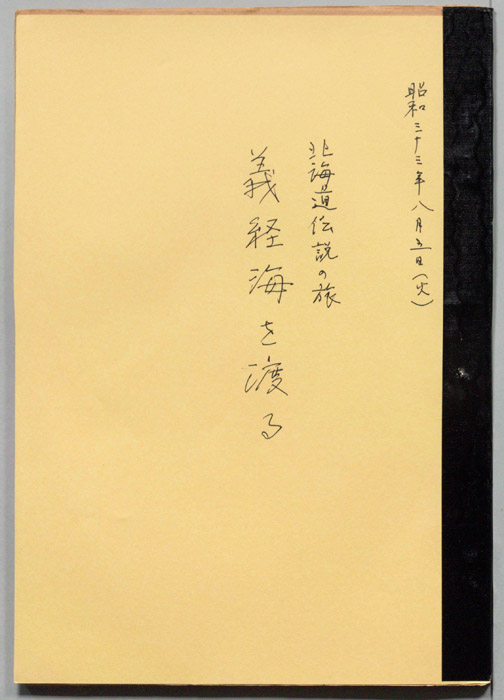 昭和三十三年八月五日(火)
北海道伝説の旅
義経海を渡る